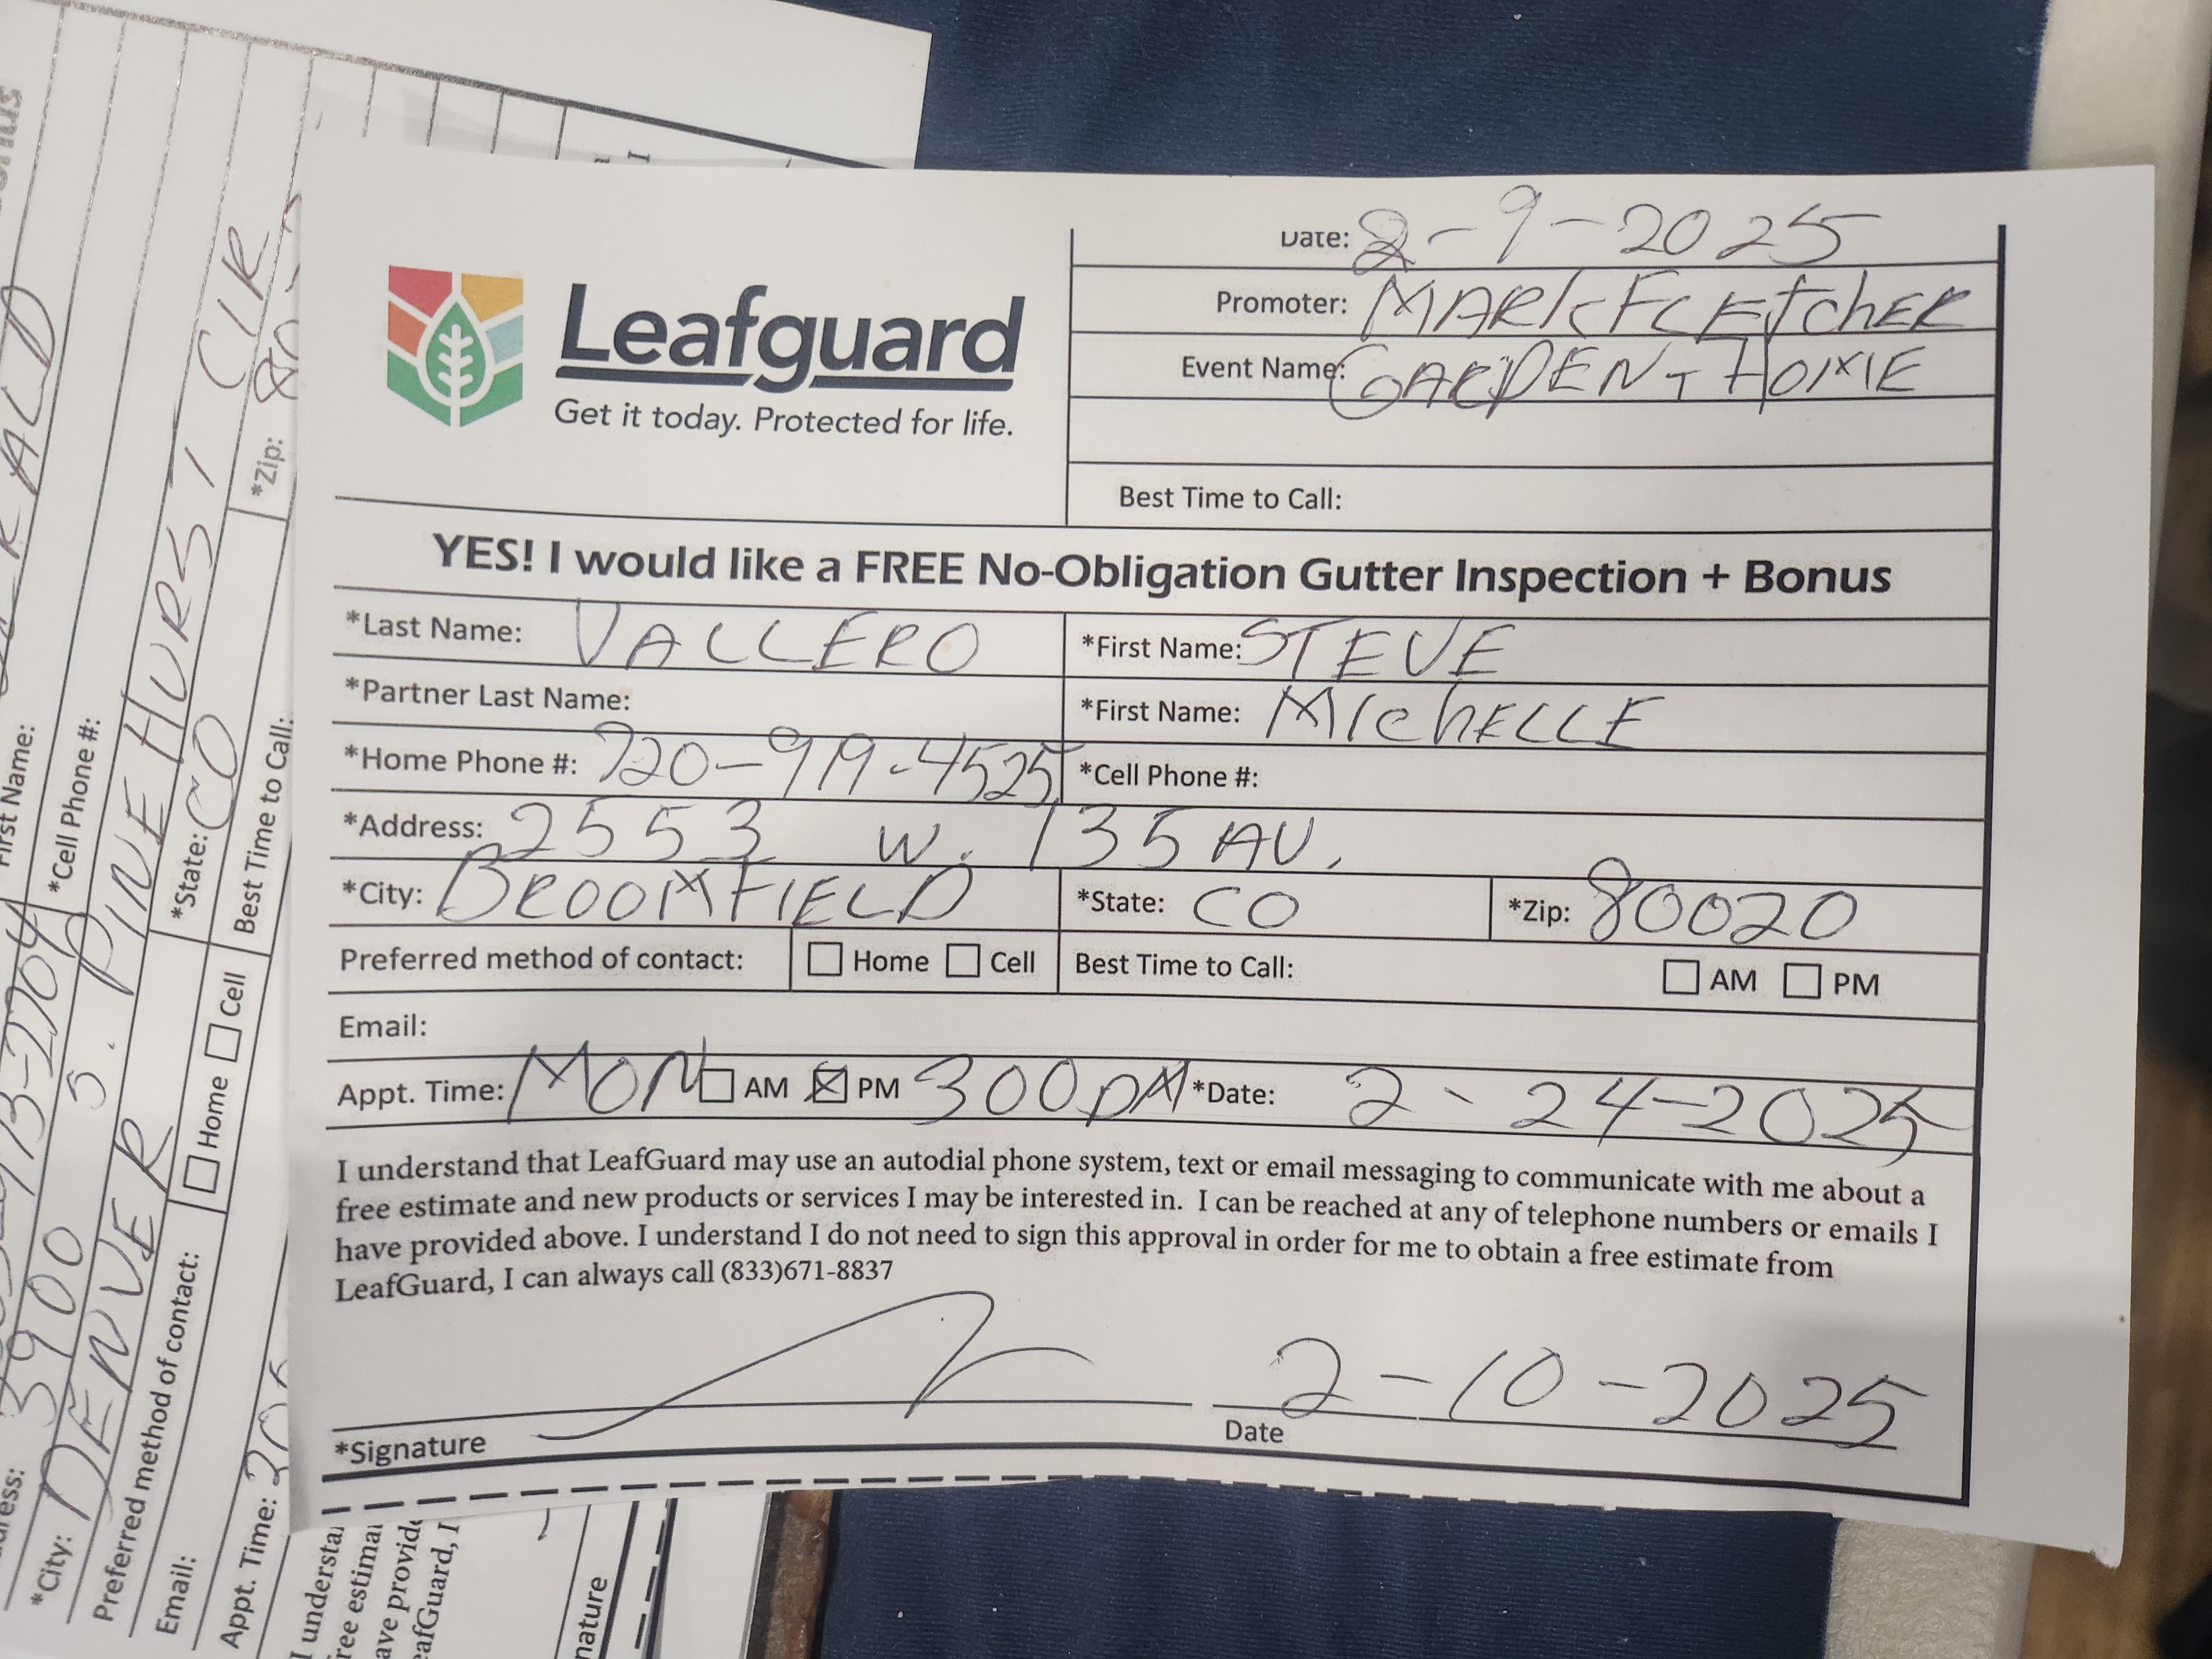 ress:
3900 S. PINEHURST CIR
First Name:
*City: DENVER
*Cell Phone #:
Preferred method of contact: Home Cell
*State: CO
*Zip:
Email:
Best Time to Call:
Appt. Time:
I understa
ree estimat
ave provide
eafGuard, I
nature
Leafguard
Get it today. Protected for life.
Date: 2-9-2025
Promoter: MARK FLETCHER
Event Name: GARDEN + HOME
Best Time to Call:
YES! I would like a FREE No-Obligation Gutter Inspection + Bonus
*Last Name: VALLERO *First Name: STEVE
*Partner Last Name: *First Name: MICHELLE
*Home Phone #: 720-919-4525 *Cell Phone #:
*Address: 2553 W. 135 AV.
*City: BROOMFIELD *State: CO *Zip: 80020
Preferred method of contact: Home Cell Best Time to Call: AM PM
Email:
Appt. Time: MON AM PM 300 PM *Date: 2-24-2025
I understand that LeafGuard may use an autodial phone system, text or email messaging to communicate with me about a
free estimate and new products or services I may be interested in. I can be reached at any of telephone numbers or emails I
have provided above. I understand I do not need to sign this approval in order for me to obtain a free estimate from
LeafGuard, I can always call (833)671-8837
2-10-2025
*Signature Date